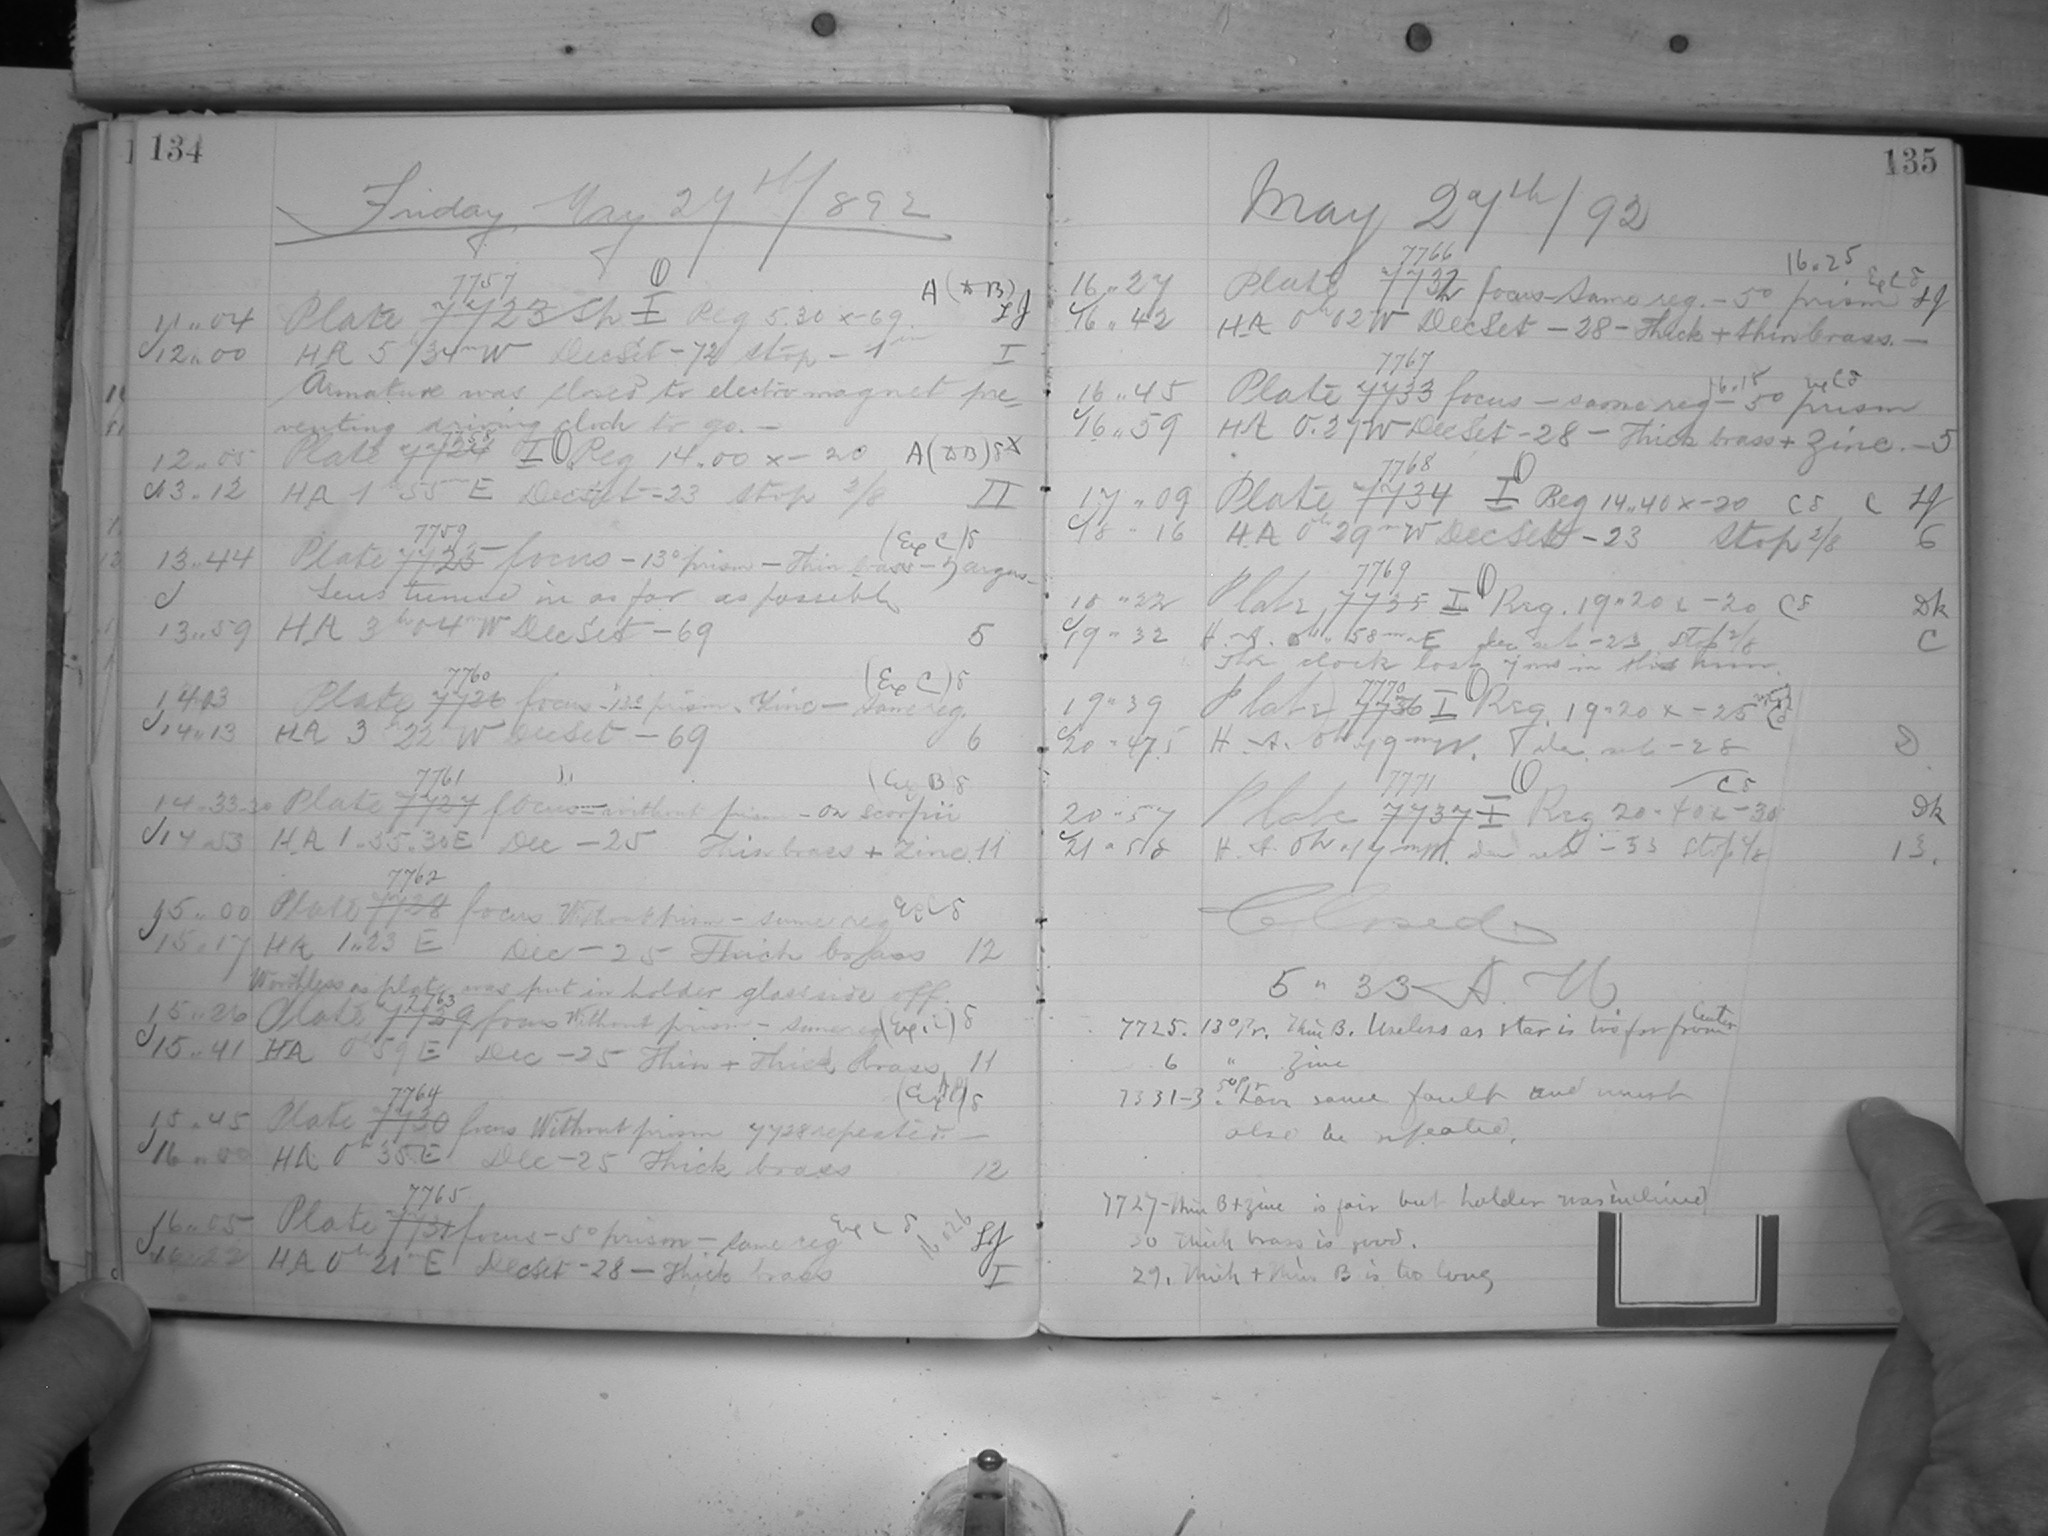 134
Friday, May 27th/892
7757
A(☆B)
11"04 Plate 7723 Sh I Reg 5.30 x-69. LJ
12"00 HA 5h34mW DecSet -72 stop - 1in I
Armature was closed to electromagnet pre-
venting driving clock to go. -
7758
12"05 Plate 7724 I Reg 14.00 x-20 A(☆B)δ
13"12 HA 1h55mE DecSet -23 stop 2/8 II
7759
(Exp C)δ
13"44 Plate 7725 focus - 13° prism - Thin brass - η argus -
Lens turned in as far as possible
13"59 HA 3h04mW DecSet -69 5
7760
(Exp C)δ
14"03 Plate 7726 focus 13° prism. Zinc - same reg.
14"13 HA 3h22mW DecSet -69 6
7761
(Exp B)δ
14"33"30 Plate 7727 focus - without prism - on Scorpii
14"53 HA 1"35"30E Dec -25 Thin brass + Zinc. 11
7762
15"00 Plate 7728 focus Without prism - same reg Exp C δ
15"17 HA 1"23 E Dec -25 Thick brass 12
Worthless as plate was put in holder glass side off.
7763
15"26 Plate 7729 focus Without prism - same reg (Exp C) δ
15"41 HA 0h59 E Dec -25 Thin + Thick brass 11
7764
15"45 Plate 7730 focus Without prism 7728 repeated. -
16"00 HA 0h35E Dec -25 Thick brass 12
7765
16"05 Plate 7731 focus - 5° prism - same reg Exp C δ 16"26 LJ
16"22 HA 0h21mE DecSet -28 - Thick brass I
135
May 27th/92
7766
16"25
16"27 Plate 7732 focus - Same reg. - 5° prism Exp C δ LJ
16"42 HA 0h02W DecSet -28 - Thick + thin brass. -
7767
16"45 Plate 7733 focus - same reg - 5° prism
16"59 HA 0.27W DecSet -28 - Thick brass + Zinc. - 5
7768
17"09 Plate 7734 I Reg 14"40 x-20 C δ C LJ
18"16 HA 0h29mW DecSet -23 Stop 2/8 6
7769
18"22 Plate 7735 I Reg. 19"20 x -20 C δ Dk
19"32 H.A. 0h"58mE dec set -23 stop 2/8 C
The clock lost 7ms in this
7770
19"39 Plate 7736 I Reg. 19"20 x -25
20"47.5 H.A. 0h"19mW. dec set -28 D
7771
C δ
20"57 Plate 7737 I Reg 20"40 x -30 Dk
21"58 H.A. 0h"17mW. dec set -33 Stop 2/8 13.
Closed
5"33 A.M.
7725. 13° Pr. Thin B. Useless as star is too far from center
6 " Zinc
7331-3 5° Pr. have same fault and must
also be repeated.
7727 - Thin B + Zinc is fair but holder was inclined
30 Thick brass is good.
29. Thick + thin B is too long